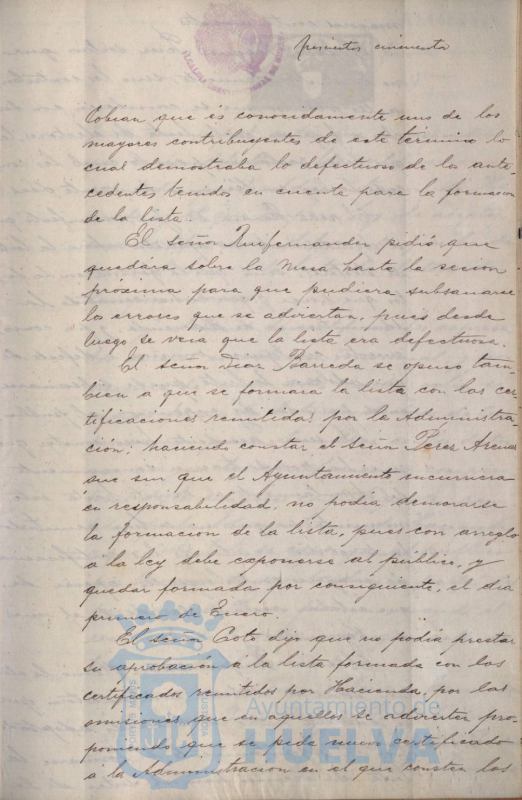 cincuenta
Cobian que és conocidamente uno de los
mayores contribuyentes de este termino lo
cual demostraba lo defectuoso de los ante-
cedentes tenidos en cuenta para la formacion
de la lista.
El señor Ruifernandez pidió que
quedára sobre la mesa hasta la sesion
próxima para que pudiera subsanarse
los errores que se advierten, pues desde
luego se veia que la lista era defectuosa.
El señor Diaz Barreda se opuso tam-
bien a que se formara la lista con las cer-
tificaciones remitidas por la Administra-
ción; haciendo constar el señor Perez
que sin que el Ayuntamiento incurriera
en responsabilidad, no podia demorarse
la formacion de la lista, pues con arreglo
a la ley debe exponerse al público, y
quedar formada por consiguiente, el dia
primero de Enero.
El señor Coto dijo que no podia prestar
su aprobacion á la lista formada con los
certificados remitidos por Hacienda, por las
omisiones que en aquellos se advierten pro-
poniendo que se pida nuevo certificado
á la Administracion en el que consten los
Ayuntamiento de
HUELVA